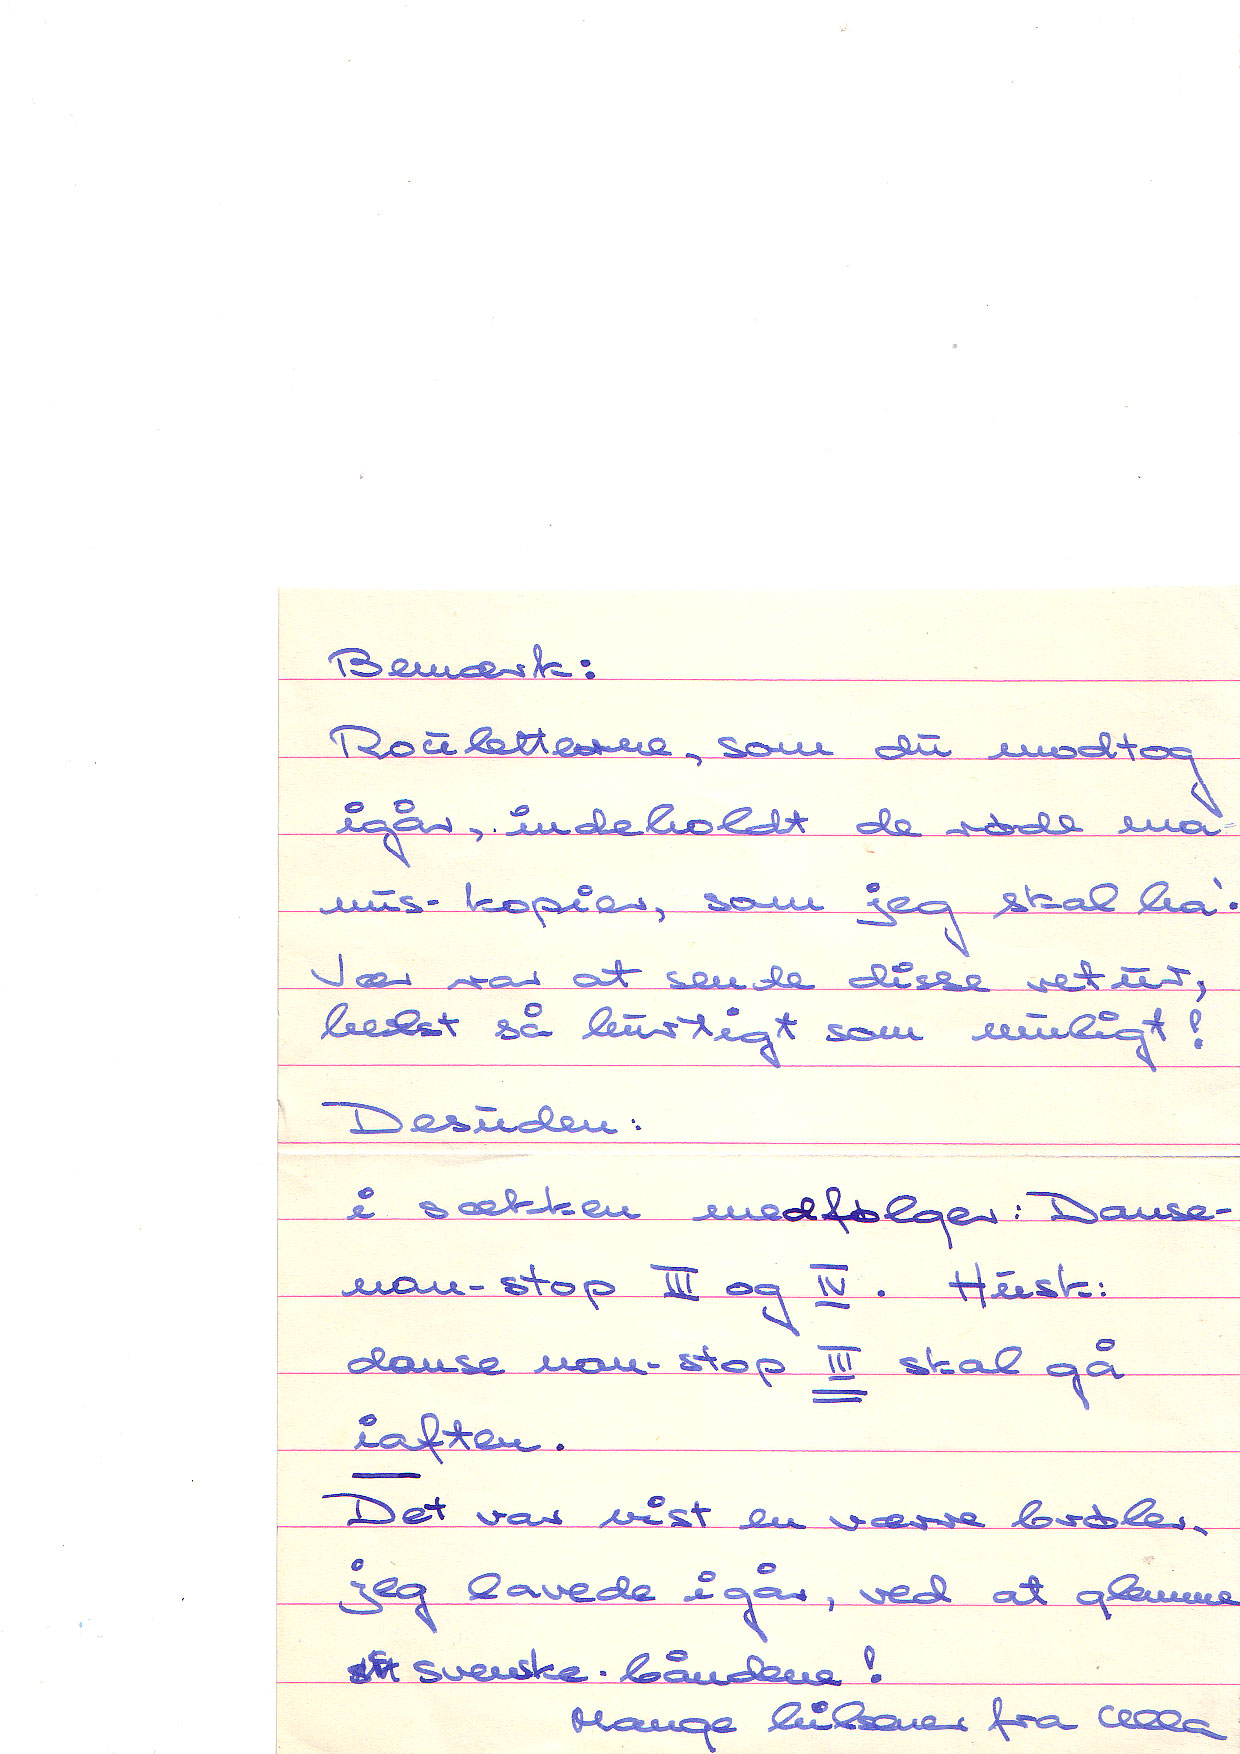 Bemærk:
Rouletterne, som du modtog
igår, indeholdt de røde ma-
nus-kopier, som jeg skal ha'.
Vær rar at sende disse retur,
helst så hurtigt som muligt!
Desuden:
i sækken medfølger: Danse-
non-stop III og IV. Husk:
danse non-stop III skal gå
iaften.
Det var vist en værre brøler,
jeg lavede igår, ved at glemme
svenske-båndene!
Mange hilsener fra Ulla